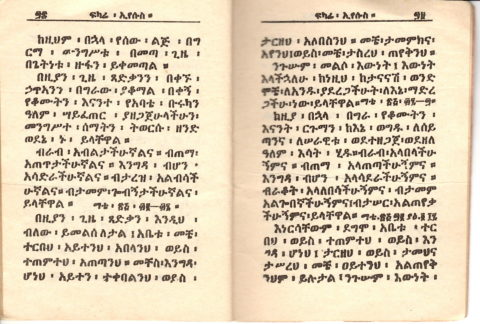 ፶፬ ፍካሬ ፡ ኢየሱስ ።
ከዚህም ፡ በኋላ ፡ የሰው ፡ ልጅ ፡ በግ
ርማ ፡ መንግሥቱ ፡ በመጣ ፡ ጊዜ ፡
በጌትነቱ ፡ ዙፋን ፡ ይቀመጣል ።
በዚያን ፡ ጊዜ ፡ ጻድቃንን ፡ በቀኙ ፡
ኃጥአንን ፡ በግራው ፡ ያቆማል ፡ በቀኝ ፡
የቆሙትን ፡ እናንተ ፡ የአባቴ ፡ ቡሩካን
ዓለም ፡ ሣይፈጠር ፡ ያዘጋጀሁላችሁን ፡
መንግሥተ ፡ ሰማትን ፡ ትወርሱ ፡ ዘንድ
ወደኔ ፡ ኑ ፡ ይላቸዋል ።
ብራብ ፡ አብልታችሁኛልና ፡ ብጠማ ፡
አጠጥታችሁኛልና ። እንግዳ ፡ ብሆን ፡
አሳድራችሁኛልና ። ብታረዝ ፡ አልብሳች
ሁኛልና ፡ ብታመም ፡ ጐብኝታችሁኛልና
ይላቸዋል ። ማቴ ፡
በዚያን ፡ ጊዜ ፡ ጻድቃን ፡ እንዲህ ፡
ብለው ፡ ይመልሰለታል ፤ አቤቱ ፡ መቼ ፡
ተርበህ ፡ አይተንህ ፡ አበላንህ ፡ ወይስ ፡
ተጠምተህ ፡ አጠጣንህ ። መቸስ ፡ እንግዳ ፡
ሆነህ ፡ አይተን ፡ ተቀበልንህ ፡ ወይስ ፡
ፍካሬ ፡ ኢየሱስ ። ፶፭
ታርዘህ ፡ አለበስንህ ። መቼ ፡ ታመምክና ፡
አየንህ ፡ ወይስ ፡ መቼ ፡ ታስረህ ፡ ጠየቅንህ ።
ንጉሡም ፡ መልሶ ፡ እውነት ፡ እውነት
እላችኋለሁ ፡ ከነዚህ ፡ ከታናናሽ ፡ ወንድ
ሞቼ ፡ ለአንዱ ፡ ያደረጋችሁት ፡ ለእኔ ፡ ማድረ
ጋችሁ ፡ ነው ፡ ይላቸዋል ። ማቴ ፡
ከዚያ ፡ በኋላ ፡ በግራ ፡ የቆሙትን ፡
እናንት ፡ ርጉማን ፡ ከእኔ ፡ ወግዱ ፡ ለሰይ
ጣንና ፡ ለሠራዊቱ ፡ ወደተዘጋጀ ፡ ወደዘለ
ዓለም ፡ እሳት ፡ ሂዱ ።
ብጠማ ፡ አላጠጣችሁኝምና ።
እንግዳ ፡ ሆኜ ፡ አላሳደራችሁኝምና ፡
ብራቆት ፡ አላለበሳችሁኝምና ፡ ብታመም
አልጐበኛችሁኝምና ፡ ብታሠር ፡ አልጠየቃ
ችሁኝምና ፡ ይላቸዋል ። ማቴ ፡
እነርሳቸውም ፡ ደግሞ ፡ አቤቱ ፡ ተር
በህ ፡ ወይስ ፡ ተጠምተህ ፡ ወይስ ፡ እን
ግዳ ፡ ሆነህ ፤ ታርዘህ ፡ ወይስ ፡ ታምህና
ታሥረህ ፡ መቼ ፡ ዐይተንህ ፡ አልጠየቅ
ንህም ፡ ይሉታል ፤ ንጉሡም ፡ እውነት ፡